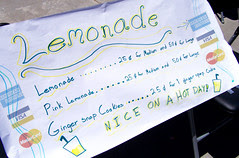 Lemonade
Lemonade.........25¢ for Medium and 50¢ for Large
Pink Lemonade......25¢ for Medium and 50¢ for Large
Ginger Snap Cookies.....25¢ for 1 ginger snap Cookie
NICE ON A HOT DAY!
VISA
VISA